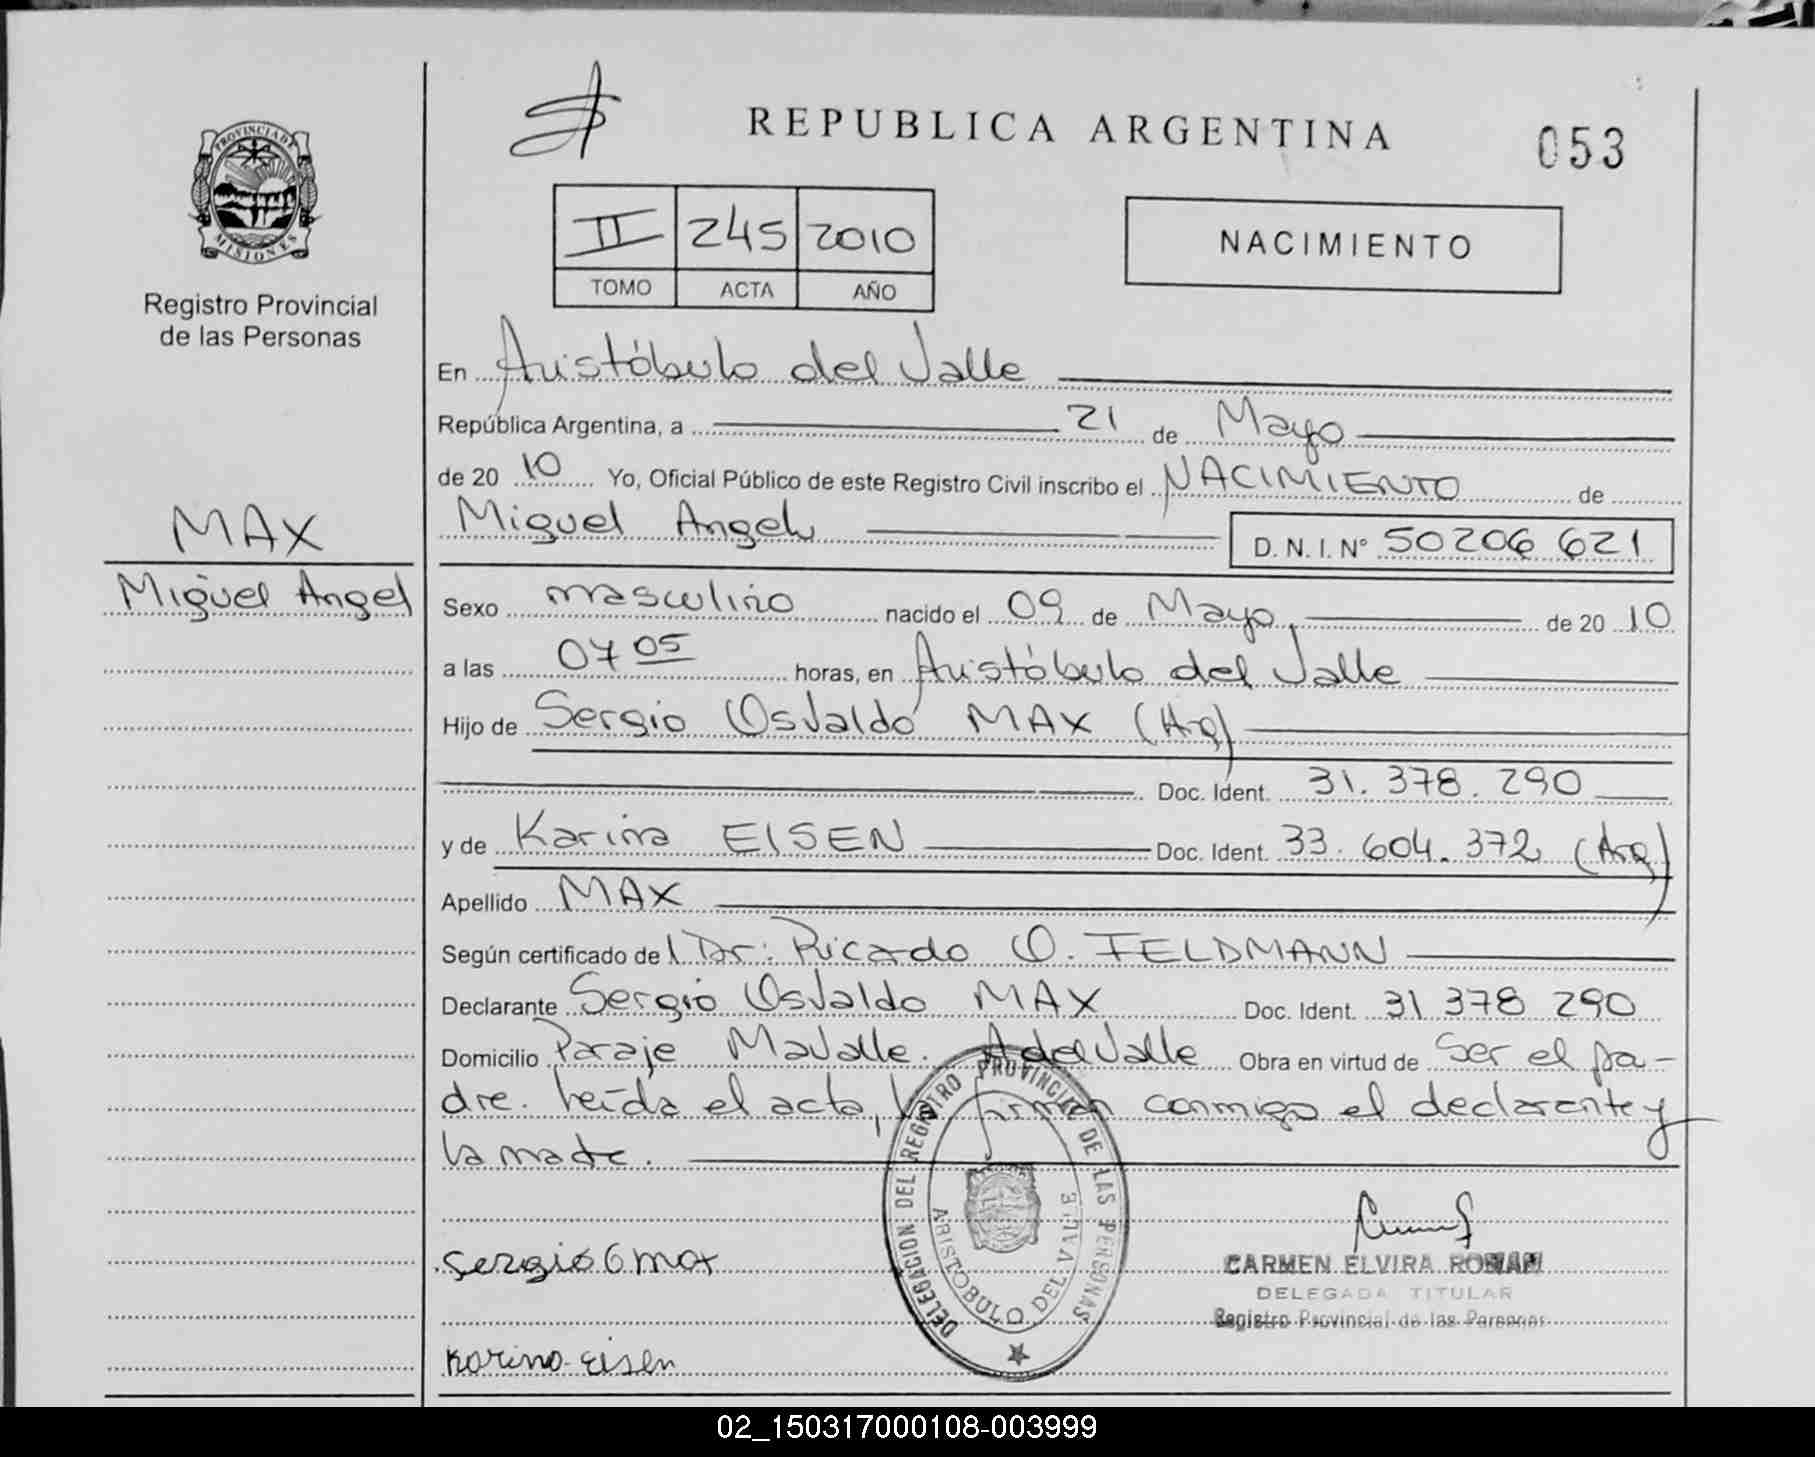 REPUBLICA ARGENTINA
053
PROVINCIA DE
MISIONES
Registro Provincial
de las Personas
II 245 2010
TOMO ACTA AÑO
NACIMIENTO
En Aristóbulo del Valle
República Argentina, a 21 de Mayo
de 20 10 Yo, Oficial Público de este Registro Civil inscribo el NACIMIENTO de
Miguel Angel D.N.I.N° 50206 621
MAX
Miguel Angel
Sexo masculino nacido el 09 de Mayo de 20 10
a las 07 05 horas, en Aristóbulo del Valle
Hijo de Sergio Osvaldo MAX (Arg)
Doc. Ident. 31.378.290
y de Karina EISEN Doc. Ident. 33.604.372 (Arg)
Apellido MAX
Según certificado del Dr: Ricardo O. FELDMANN
Declarante Sergio Osvaldo MAX Doc. Ident. 31 378 290
Domicilio Paraje Mavalle. A del Valle Obra en virtud de Ser el pa-
dre. Leída el acta, la firman conmigo el declarante y
la madre.
DELEGACION DEL REGISTRO PROVINCIAL DE LAS PERSONAS
ARISTOBULO DEL VALLE
Sergio O max
CARMEN ELVIRA ROMAN
DELEGADA TITULAR
Registro Provincial de las Personas
Karina Eisen
02_150317000108-003999